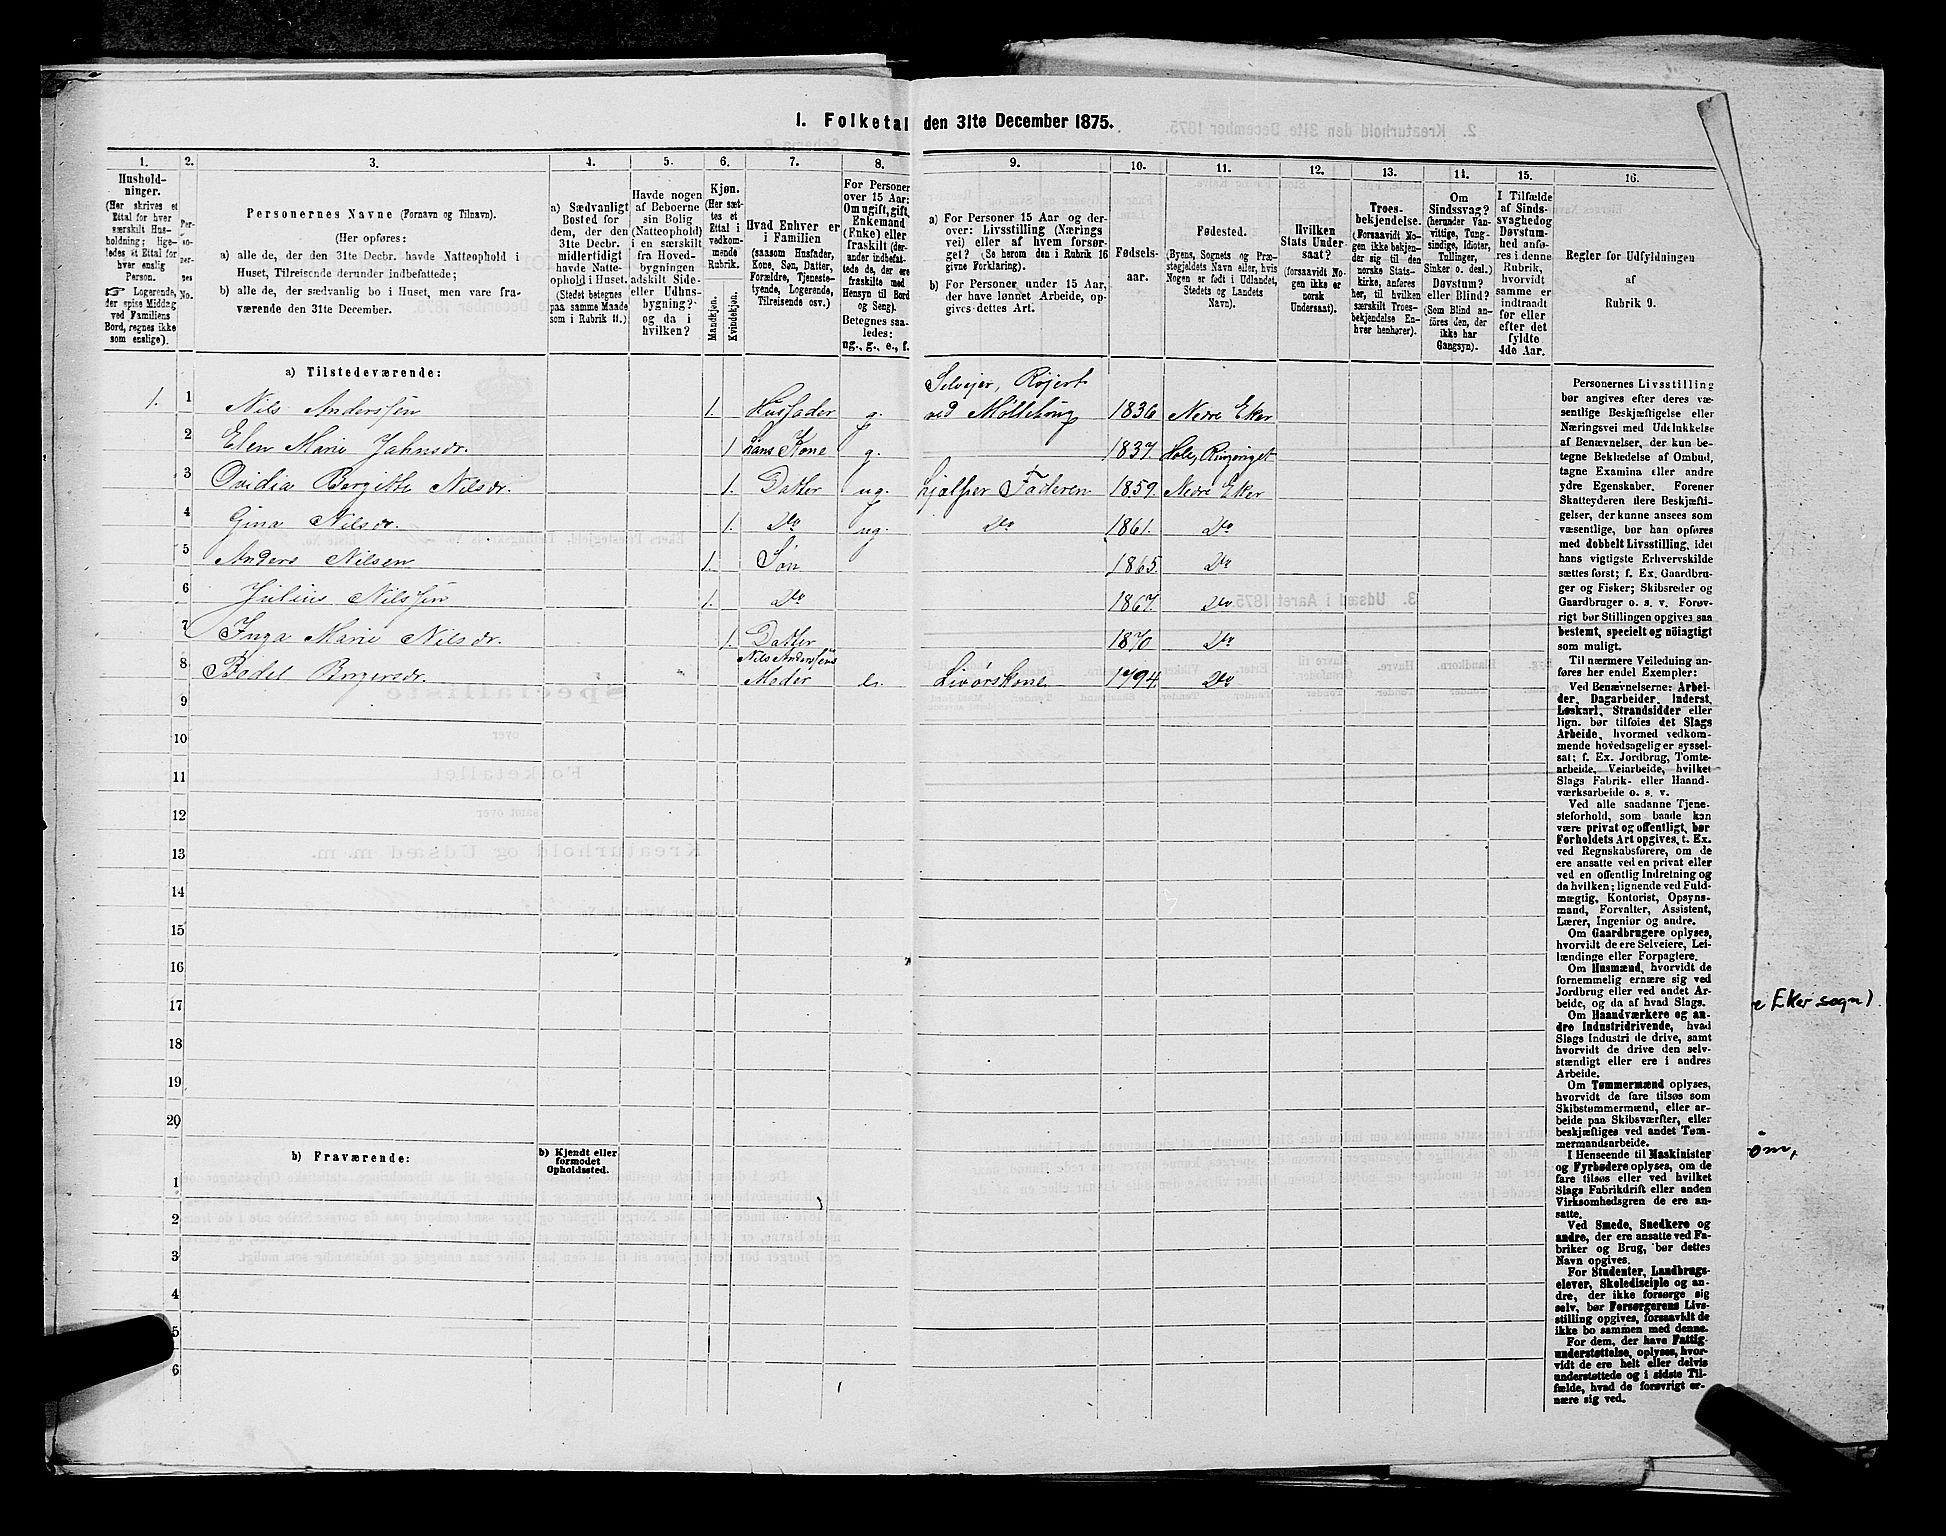 1. Folketal den 31te December 1875.
1. 2. 3. 4. 5. 6. 7. 8. 9. 10. 11. 12. 13. 14. 15. 16.
Hushold-
ninger.
(Her skrives et
Ettal for hver
særskilt Hus-
holdning; lige-
ledes et Ettal for
hver enslig
Person.
☞ Logerende,
der spise Middag
ved Familiens
Bord, regnes ikke
som enslige).
Per-
so-
ner-
nes
No.
Personernes Navne (Fornavn og Tilnavn).
(Her opføres:
a) alle de, der den 31te Decbr. havde Natteophold i
Huset, Tilreisende derunder indbefattede;
b) alle de, der sædvanlig bo i Huset, men vare fra-
værende den 31te December.
a) Sædvanligt
Bosted for
dem, der den
31te Decbr.
midlertidigt
havde Natte-
ophold i Huset.
(Stedet betegnes
paa samme Maade
som i Rubrik 11.)
Havde nogen
af Beboerne
sin Bolig
(Natteophold)
i en særskilt
fra Hoved-
bygningen
adskilt Side-
eller Udhus-
bygning?
og da i
hvilken?
Kjøn.
(Her sæt-
tes et
Ettal i
vedkom-
mende
Rubrik.
Mandkjøn.
Kvindekjøn.
Hvad Enhver er
i Familien
(saasom Husfader,
Kone, Søn, Datter,
Forældre, Tjeneste-
tyende, Logerende,
Tilreisende osv.)
For Personer
over 15 Aar:
Om ugift, gift,
Enkemand
(Enke) eller
fraskilt (der-
under indbefat-
tede de, der ere
fraskilte med
Hensyn til Bord
og Seng).
Betegnes saa-
ledes:
ug., g., e., f.
a) For Personer 15 Aar og der-
over: Livsstilling (Nærings
vei) eller af hvem forsør-
get? (Se herom den i Rubrik 16
givne Forklaring).
b) For Personer under 15 Aar,
der have lønnet Arbeide, op-
gives dettes Art.
Fødsels-
aar.
Fødested.
(Byens, Sognets og Præ-
stegjeldets Navn eller, hvis
Nogen er født i Udlandet,
Stedets og Landets
Navn).
Hvilken
Stats Under-
saat?
(forsaavidt No-
gen ikke er
norsk
Undersaat).
Troes-
bekjendelse.
(Forsaavidt No-
gen ikke bekjen-
der sig til den
norske Stats-
kirke, anføres
her, til hvilken
særskilt Troes-
bekjendelse En-
hver henhører).
Om
Sindssvag?
(herunder Van-
vittige, Tung-
sindige, Idioter,
Tullinger,
Sinker o. desl.)
Døvstum?
eller Blind?
(Som Blind an-
føres den, der
ikke har
Gangsyn).
I Tilfælde
af Sinds-
svaghed og
Døvstum-
hed anfø-
res i denne
Rubrik,
hvorvidt
samme er
indtraadt
før eller
efter det
fyldte
4de Aar.
Regler for Udfyldningen
af
Rubrik 9.
a) Tilstedeværende:
Selveier, Røjert
1. 1 Nils Anderssen 1. Husfader g. ved Møllebrug 1836 Nedre Eker
2 Elen Marie Jahnsdr. 1 hans Kone g. 1837. Hole, Ringeriget
3 Ovidia Bergitte Nilsdr. 1. Datter ug. hjælper Faderen 1859. Nedre Eker
4 Gina Nilsdr. 1. Do ug. Do 1861. Do
5 Anders Nilsen 1. Søn 1865. Do
6 Julius Nilssen 1. Do 1867. Do
7 Inga Marie Nilsdr. 1. Datter 1870 Do
Nils Anderssens
8 Bodel Borgersdr. Moder e. Livørskone 1794. Do
9
10
11
12
13
14
15
16
17
18
19
20
b) Fraværende:
b) Kjendt eller
formodet
Opholdssted.
1
2
3
4
5
6
Personernes Livsstilling
bør angives efter deres væ-
sentlige Beskjæftigelse eller
Næringsvei med Udelukkelse
af Benævnelser, der kun be-
tegne Beklædelse af Ombud,
tagne Examina eller andre
ydre Egenskaber. Forener
Skatteyderen flere Beskjæfti-
gelser, der kunne ansees som
væsentlige, bør han opføres
med dobbelt Livsstilling, idet
hans vigtigste Erhvervskilde
sættes først; f. Ex. Gaardbru-
ger og Fisker; Skibsreder og
Gaardbruger o. s. v. Forøv-
rigt bør Stillingen opgives saa
bestemt, specielt og nøiagtigt
som muligt.
Til nærmere Veiledning an-
føres her endel Exempler:
Ved Benævnelserne: Arbei-
der, Dagarbeider, Inderst,
Løskarl, Strandsidder eller
lign. bør tilføies det Slags
Arbeide, hvormed vedkom-
mende hovedsagelig er syssel-
sat; f. Ex. Jordbrug, Tomte-
arbeide, Veiarbeide, hvilket
Slags Fabrik- eller Haand-
værksarbeide o. s. v.
Ved alle saadanne Tjene-
steforhold, som baade kan
være privat og offentligt, bør
Forholdets Art opgives, t. Ex.
ved Regnskabsførere, om de
ere ansatte ved en privat eller
ved en offentlig Indretning og
da hvilken; lignende ved Fuld-
mægtig, Kontorist, Opsyns-
mand, Forvalter, Assistent,
Lærer, Ingeniør og andre.
Om Gaardbrugere oplyses,
hvorvidt de ere Selveiere, Lei-
lændinge eller Forpagtere.
Om Husmænd, hvorvidt de
fornemmelig ernære sig ved
Jordbrug eller ved andet Ar-
beide, og da af hvad Slags.
Om Haandværkere og an-
dre Industridrivende, hvad
Slags Industri de drive, samt
hvorvidt de drive den selv-
stændigt eller ere i andres
Arbeide.
Om Tømmermænd oplyses,
hvorvidt de fare tilsøs som
Skibstømmermænd, eller ar-
beide paa Skibsværfter, eller
beskjæftiges ved andet Tøm-
mermandsarbeide.
I Henseende til Maskinister
og Fyrbødere oplyses, om de
fare tilsøs eller ved hvilket
Slags Fabrikdrift eller anden
Virksomhedsgren de ere an-
satte.
Ved Smede, Snedkere og
andre, der ere ansatte ved Fa-
briker og Brug, bør dettes
Navn opgives.
For Studenter, Landbrugs-
elever, Skoledisciple og an-
dre, der ikke forsørge sig
selv, bør Forsørgerens Livs-
stilling opgives, forsaavidt de
ikke bo sammen med denne.
For dem, der have Fattig-
understøttelse, oplyses, hvor-
vidt de ere helt eller delvis
understøttede og i sidste Til-
fælde, hvad de forøvrigt er-
nære sig ved.
e Eker sogn).
øm,